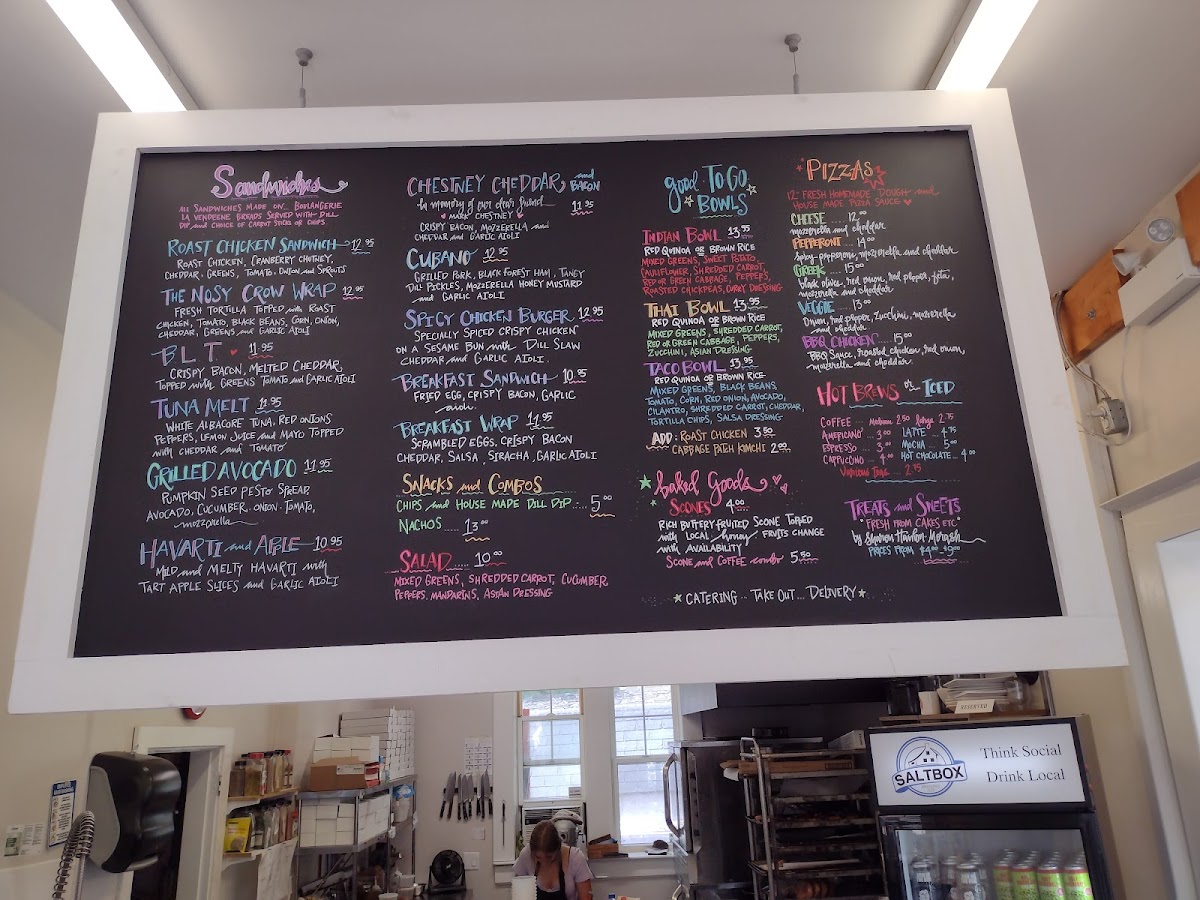 Sandwiches
ALL SANDWICHES MADE ON... BOULANGERIE
LA VENDEENE BREADS SERVED WITH DILL
DIP and CHOICE OF CARROT STICKS OR CHIPS
ROAST CHICKEN SANDWICH 12.95
ROAST CHICKEN, CRANBERRY CHUTNEY,
CHEDDAR, GREENS, TOMATO, ONION and SPROUTS
THE NOSY CROW WRAP 12.95
FRESH TORTILLA TOPPED with ROAST
CHICKEN, TOMATO, BLACK BEANS, CORN, ONION,
CHEDDAR, GREENS and GARLIC AIOLI
B L T 11.95
CRISPY BACON, MELTED CHEDDAR,
TOPPED with GREENS TOMATO and GARLIC AIOLI
TUNA MELT 11.95
WHITE ALBACORE TUNA, RED ONIONS
PEPPERS, LEMON JUICE and MAYO TOPPED
with CHEDDAR and TOMATO
GRILLED AVOCADO 11.95
PUMPKIN SEED PESTO SPREAD,
AVOCADO, CUCUMBER, ONION, TOMATO,
mozzarella
HAVARTI and APPLE 10.95
MILD and MELTY HAVARTI with
TART APPLE SLICES and GARLIC AIOLI
CHESTNEY CHEDDAR, and BACON
In memory of our dear friend 11.95
MARK CHESTNEY
CRISPY BACON, MOZZERELLA and
CHEDDAR and GARLIC AIOLI
CUBANO 12.95
GRILLED PORK, BLACK FOREST HAM, TANEY
DILL PICKLES, MOZZERELLA HONEY MUSTARD
and GARLIC AIOLI
SPICY CHICKEN BURGER 12.95
SPECIALLY SPICED CRISPY CHICKEN
ON A SESAME BUN with DILL SLAW
CHEDDAR and GARLIC AIOLI.
BREAKFAST SANDWICH 10.95
FRIED EGG, CRISPY BACON, GARLIC
aioli.
BREAKFAST WRAP 11.95
SCRAMBLED EGGS, CRISPY BACON
CHEDDAR, SALSA, SIRACHA, GARLIC AIOLI
SNACKS and COMBOS
CHIPS and HOUSE MADE DILL DIP..... 5.00
NACHOS..... 13.00
SALAD..... 10.00
MIXED GREENS, SHREDDED CARROT, CUCUMBER,
PEPPERS, MANDARINS, ASIAN DRESSING
good To Go
BOWLS
INDIAN BOWL 13.95
RED QUINOA OR BROWN RICE
MIXED GREENS, SWEET POTATO,
CAULIFLOWER, SHREDDED CARROT,
RED OR GREEN CABBAGE, PEPPERS,
ROASTED CHICKPEAS, CURRY DRESSING
THAI BOWL 13.95
RED QUINOA OR BROWN RICE
MIXED GREENS, SHREDDED CARROT,
RED OR GREEN CABBAGE, PEPPERS,
ZUCCHINI, ASIAN DRESSING
TACO BOWL 13.95
RED QUINOA OR BROWN RICE
MIXED GREENS, BLACK BEANS,
TOMATO, CORN, RED ONION, AVOCADO,
CILANTRO, SHREDDED CARROT, CHEDDAR,
TORTILLA CHIPS, SALSA DRESSING
ADD: ROAST CHICKEN 3.50
CABBAGE PATCH KIMCHI 2.00
baked Goods
SCONES 4.00
RICH BUTTERY FRUITED SCONE TOPPED
with LOCAL honey FRUITS CHANGE
with AVAILABILITY
SCONE and COFFEE combo 5.50
CATERING... TAKE OUT... DELIVERY
PIZZAS
12" FRESH HOMEMADE DOUGH and
HOUSE MADE PIZZA SAUCE
CHEESE ... 12.00
mozzerella and cheddar
PEPPERONI ... 14.00
Spicy pepperoni, mozzerella and cheddar
GREEK ... 15.00
black olive, red onion, red pepper, feta,
mozzarella and cheddar
VEGGIE 13.00
Onion, red pepper, zucchini, mozzerella
and cheddar
BBQ CHICKEN ... 15.00
BBQ Sauce, roasted chicken, red onion,
mozzerella and cheddar
HOT BREWS or... ICED
COFFEE ... Medium 2.50 Large 2.75
AMERICANO ... 3.00 LATTE ... 4.75
ESPRESSO ... 3.00 MOCHA ... 5.00
CAPPUCCINO ... 4.00 HOT CHOCOLATE... 4.00
Various Teas ... 2.75
TREATS and SWEETS
"FRESH FROM CAKES ETC"
by Sharon
PRICES FROM $4.00
RESERVED
SALTBOX
Think Social
Drink Local